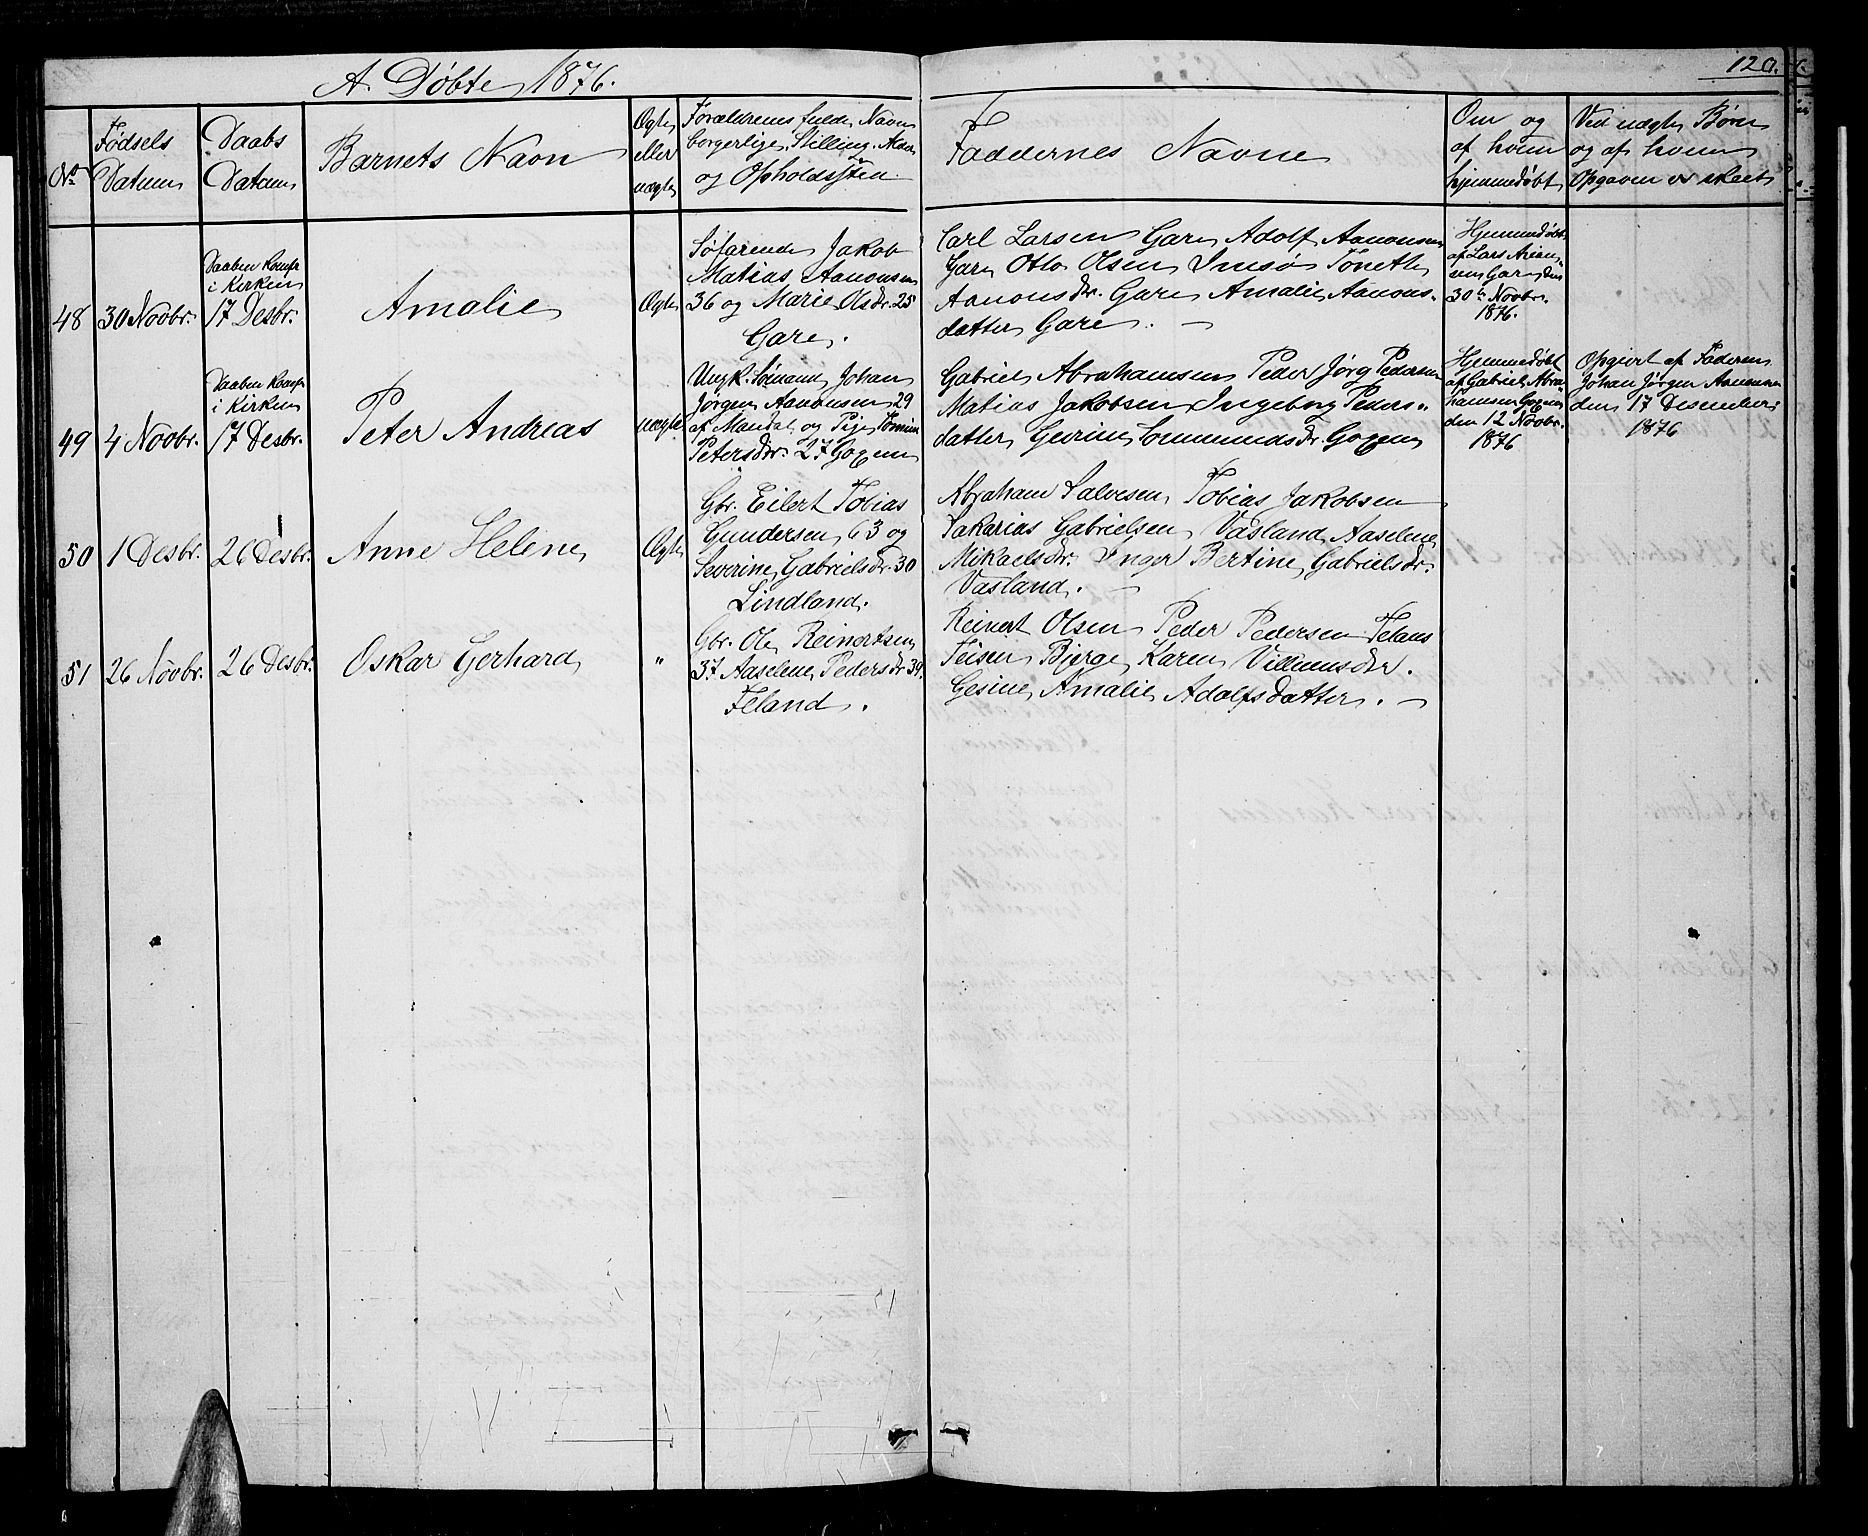 A. Døbte 1876.
120.
No
Fødsels Datum
Daabs Datum
Barnets Navn
Ægte eller uægte
Forældrenes fulde Navn
borgerlige Stilling
og Opholdssted
Faddernes Navne
Om og
af hvem
hjemmedøbt
Ved uægte Børn
og af hvem
Opgaven er skeet
48
30 Novbr.
Daaben Komfr
i Kirken
17 Desbr.
Amalie
Ægte
Søfarende Jakob
Matias Aanonsen
36 og Marie Olsdr. 25
Gare.
Carl Larsen Gare Adolf Aanonsen
Gare Otto Olsen Imsø Toneth
Aanonsdr. Gare Amalie Aanons-
datter Gare.
Hjemmedøbt
af Lars
Gare den
30te Novbr.
1876.
49
4 Novbr.
Daaben Komfr
i Kirken
17 Desbr.
Peter Andreas
uægte
Ungk. Sømand Johan
Jørgen Aanonsen 29
af Mandal og Pige Tomine
Petersdr. 27
Gabriel Abrahamsen Peder Jørg Pedersen
Matias Jakobsen Ingeborg Peders-
datter
Hjemmedøbt
af Gabriel Abra-
hamsen
den 12 Novbr.
1876
Opgivet af Faderen
Johan Jørgen Aanonsen
den 17 Desember
1876
50
1 Desbr.
26 Desbr.
Anne Helene
Ægte
Gbr. Eilert Tobias
Gundersen 63 og
Severine Gabrielsdr. 30
Lindland.
Abraham Salvesen Tobias Jakobsen
Sakarias Gabrielsen Våsland Aaselene
Mikaelsdr. Inger Bertine Gabrielsdr.
Våsland.
51
26 Novbr.
26 Desbr.
Oskar Gerhard
"
Gbr. Ole Reinertsen
37 Aaselene Pedersdr 39.
Feland.
Reinert Olsen Peder Pedersen
Bjerge Karen Villumsdr.
Gesine Amalie Adolfsdatter.